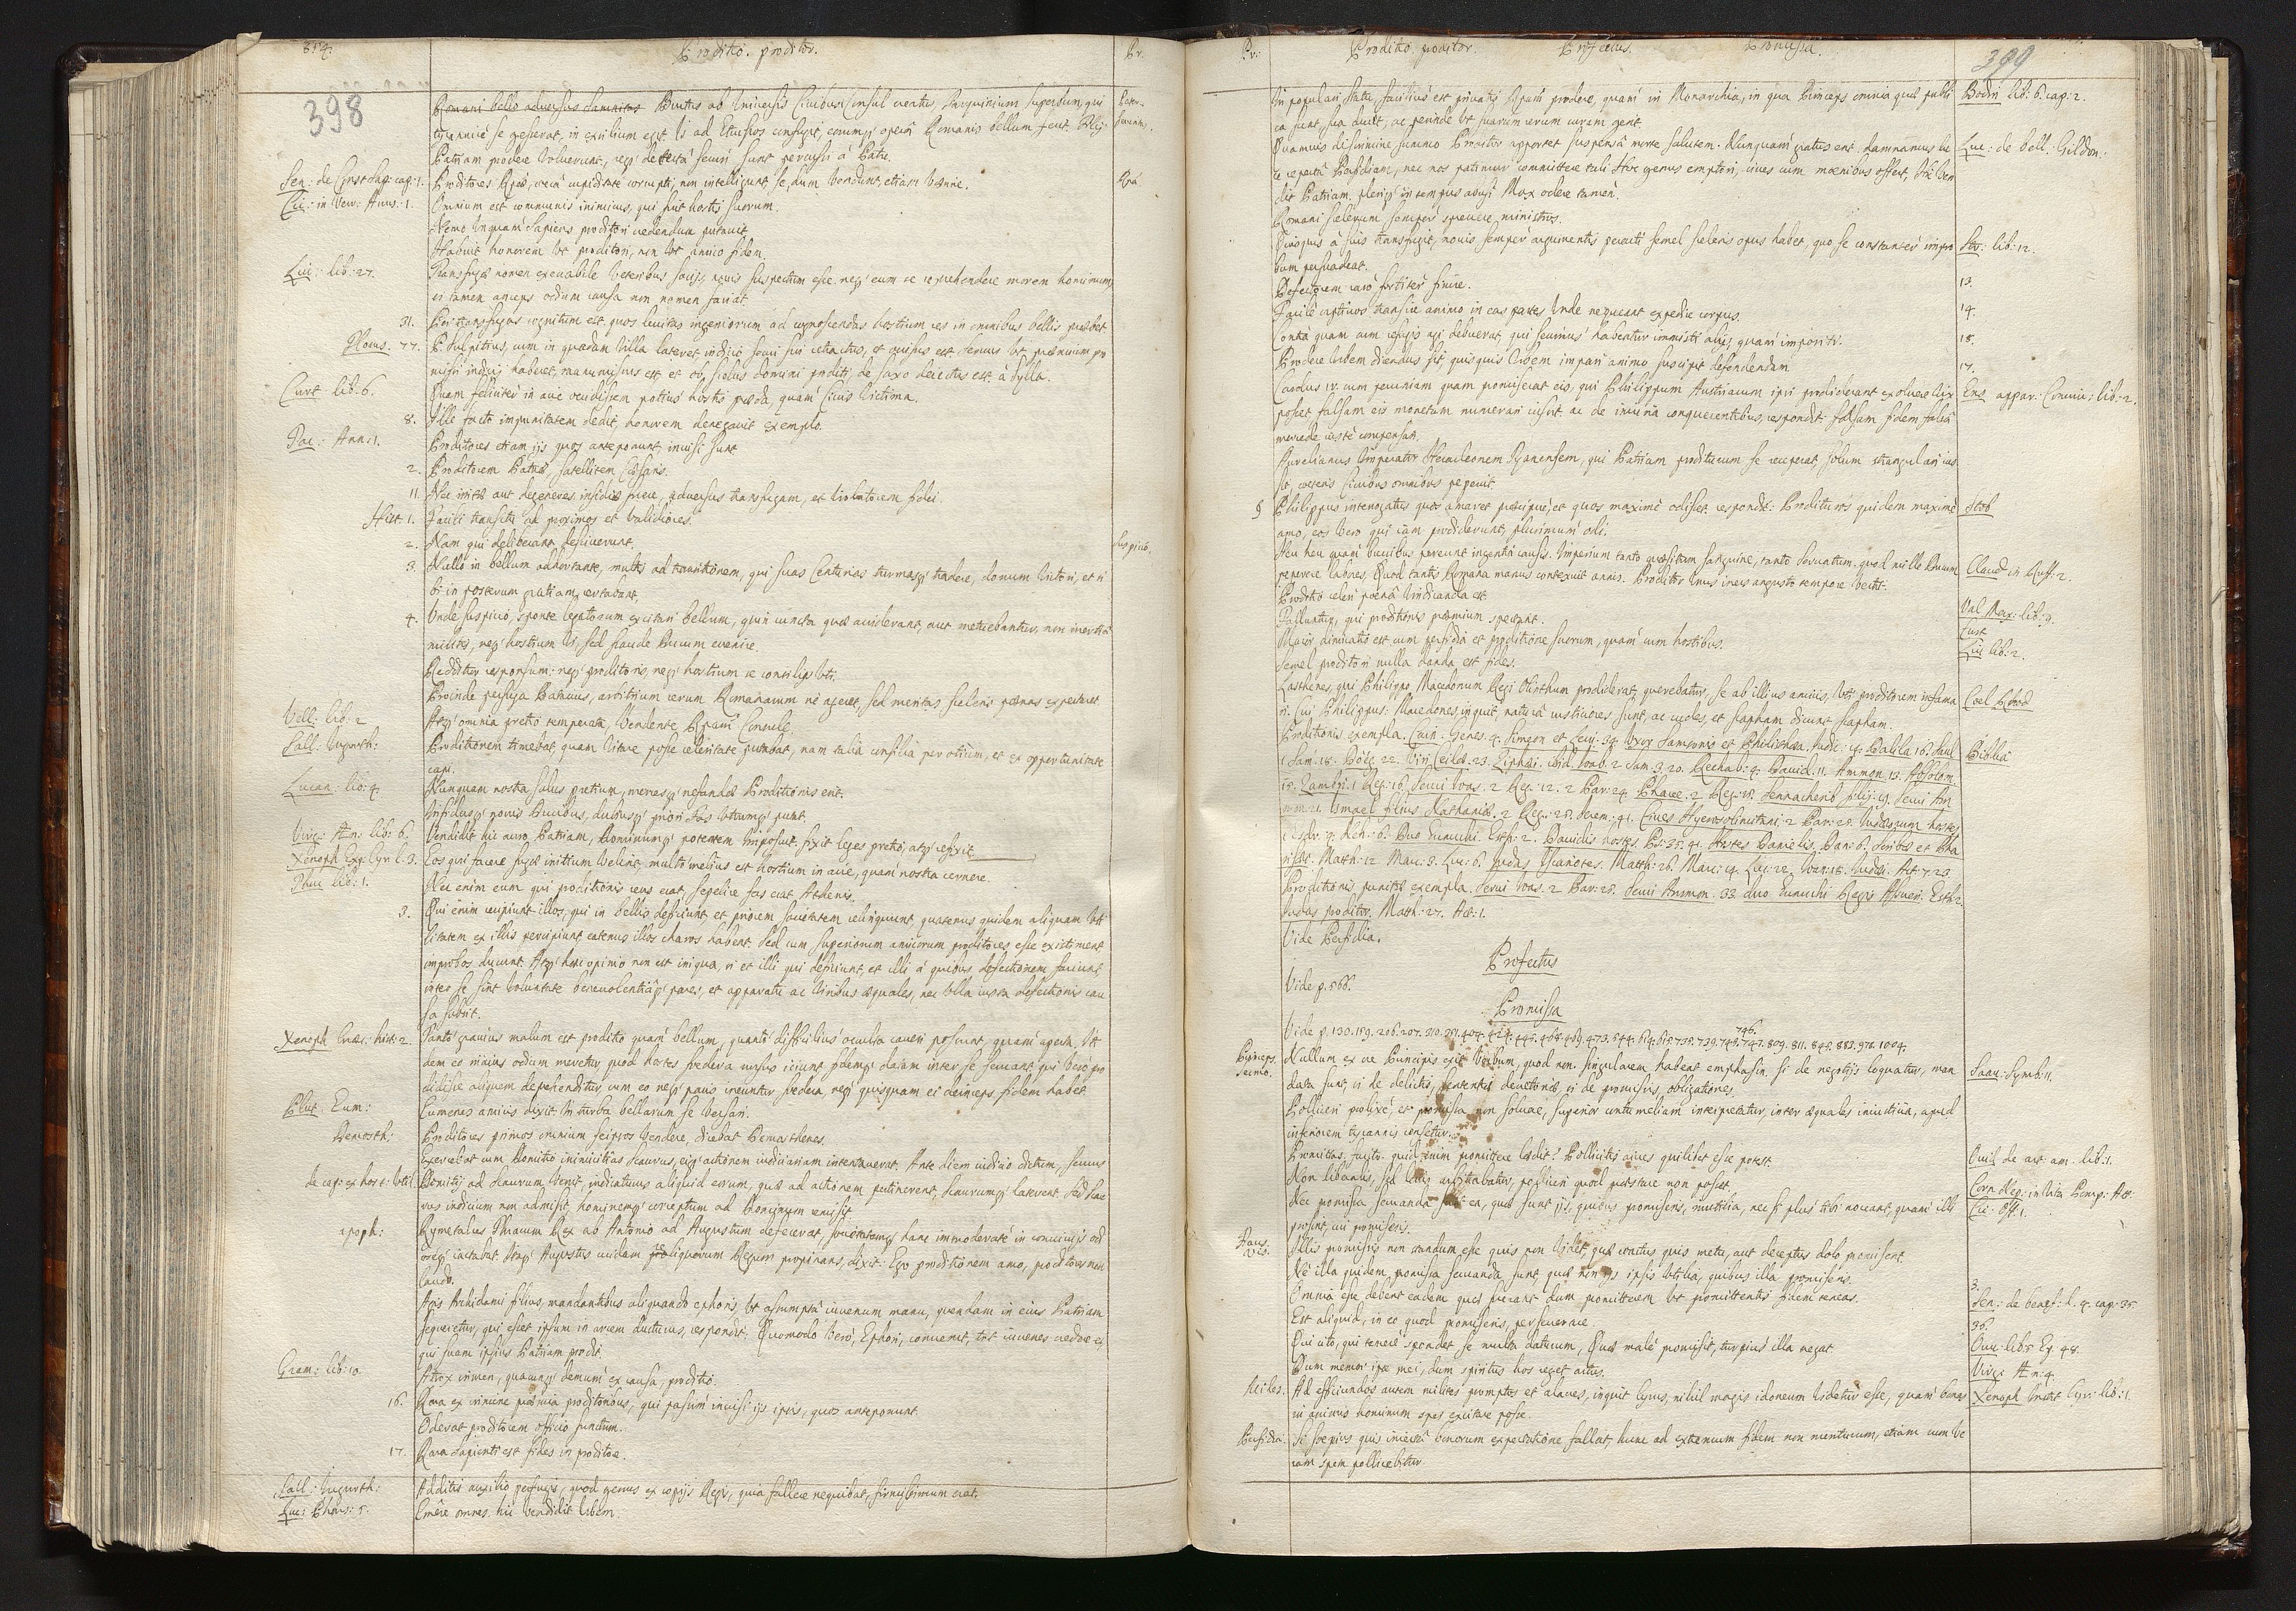 854.
Proditio. proditor.
Pr.
398
Romani bello adversus Samnites Brutus ab Universis Civibus Consul creatus, Tarquinium Superbum, qui
tyrannicè se gesserat, in exilium egit. Is ad Etruscos confugit, eorumq; operâ Romanis bellum fecit. Filij
Patriam prodere voluerunt, sed detectâ securi sunt percussi à Patre.
Sen: de Const Sap: cap: 1. Proditores cupiditate corrupti, non intelligunt, se, dum vendunt, etiam venire.
Cic: in Verr: Auus: 1. Omnium est communis inimicus, qui fuit hostis suorum.
Nemo unquam Sapiens proditori credendum putavit.
Habuit honorem ut proditori, non ut amico fidem.
Liu: lib: 27. Transfugae nomen execrabile veteribus socijs, novis suspectum esse. neq; eum se reprehendere morem hominum,
ei tamen anceps odium causa non nomen faciat.
31. Per transfugas cognitum est, quos levitas ingeniorum ad cognoscendas hostium res in omnibus bellis praebet
Florus. 77. P. Sulpitius, cum in quadam Villa lateret, indicio servi sui retractus, et occisus est. servus ut praemium pro
missi indicij haberet, manumissus est et ob scelus domini proditi de saxo deiectus est à Sylla.
Curt lib: 6. Quam feliciter in acie occidissem potius hostis praeda, quam Civis victima.
8. Ille facto impunitatem dedit, honorem denegavit exemplo.
Tac: Ann: 1. Proditores etiam ijs quos anteponunt, invisi sunt
2. Proditorem Patriae, satellitem Caesaris.
11. Nec irritae aut degeneres insidiae fuere, adversus transfugam, et violatorem fidei.
Hist. 1. Facili transitu ad proximos et validiores.
2. Nam qui deliberant, desciverunt.
Suspicio.
3. Nullo in bellum adhortante, multis ad transitionem, qui suas Centurias turmasq; tradere, donum victori, et si
bi in posterum gratiam, certabant.
4. Unde suspicio, sponte legatorum excitari bellum, quin cuncta quae acciderant, aut metuebantur, non inertiâ
militis, neq; hostium vi, sed fraude Ducum evenire.
Redditur responsum: neq; proditoris, neq; hostium se consilijs uti.
Proinde perfuga Batavus, arbitrium rerum Romanarum nè ageret, sed meritas sceleris poenas expectaret
Vell: lib: 2 Atq; omnia pretio temperata, vendente Consule.
Sall: Iugurth: Proditionem timebat, quam vitare posse celeritate putabat, nam talia consilia per otium, et ex opportunitate
capi.
Lucan: lib: 4. Nunquam nostra salus pretium, mercesq; nefandae Proditionis erit.
Infidusq; novis Ducibus, dubiusq; priori fas utrumq; putat.
Virg: Aen: lib: 6. Vendidit hic auro Patriam, Dominumq; potentem Imposuit, fixit leges pretio, atq; refixit.
Xenoph Exp: Cyr l: 3. Eos qui facere fugae initium velint, multò melius est hostium in acie, quam nostra cernere.
Thuc lib: 1. Nec enim eum qui proditionis reus erat, sepelire fas erat Athenis.
3. Qui enim recipiunt illos, qui in bellis desciunt, et priorem societatem relinquunt, quatenus quidem aliquam uti
litatem ex illis percipiunt, eatenus illos charos habent. Sed cum superiorum amicorum proditores esse existiment
improbos ducunt. Atq; haec opinio non est iniqua, si et illi qui desciunt, et illi à quibus defectionem faciunt,
inter se sint voluntate benevolentiâq; pares, et apparatu ac viribus aequales, nec ulla iusta defectionis cau
sa subsit.
Xenoph Graec: hist: 2. Tantò gravius malum est proditio quam bellum, quantò difficiliùs occulta caveri possunt, quam aperta. Ut
dem eo maius odium meretur quod hostes foedera rursus iciunt fidemq; datam inter se servant qui verò pro
didisse aliquem deprehenditur, cum eo neq; pacis ineuntur foedera, neq; quisquam ei deinceps fidem habet.
Plut: Eum: Eumenes amicis dixit In turba bellarum se versari.
Demosth: Proditores primos omnium seipsos vendere, dicebat Demosthenes.
Exercebat cum Domitio inimicitias Scaurus, eiq; actionem iudiciariam intentaverat. Ante diem iudicio dictum, servus
de cap: ex host: util: Domitij ad Scaurum venit, indicaturus aliquid eorum, quae ad actionem pertinerent, Scaurumq; laterent. Sed Sca
urus indicium non admisit, hominemq; correptum ad Dominum remisit.
apoph: Rymetalces Thracum Rex ab Antonio ad Augustum defecerat, societatemq; hanc immoderatè in convivijs ex
probrabat. Itaq; Augustus cuidam reliquorum Regum propinans, dixit: Ego proditionem amo, proditores non
laudo.
Agis Archidami filius, mandantibus aliquando ephoris, ut assumptâ iuvenum manu, quendam in eius Patriam
sequeretur, qui esset ipsum in arcem ducturus, respondit, Quomodo verò, Ephori, convenit, tot iuvenes credere ei,
qui suam ipsius Patriam prodit.
Gram: lib: 10. Atrox crimen, quacunq; demum ex causâ, proditio.
16. Rara ex crimine praemia proditoribus, qui passim invisi ijs ipsis, quos anteponunt.
Oderat proditorem officio functum.
17. Rara Sapienti est fides in proditore.
Sall: Iugurth: Additis auxilio perfugis, quod genus ex copijs Regis, quia fallere nequibat, firmissimum erat.
Luc: Phars: 5. Emêre omnes. hic vendidit Urbem.
Pr:
Proditio. proditor. Profectus. Promissa.
399
In populari Statu, facilius est privatis prodere, quam in Monarchia, in qua Princeps omnia quae publi Bodin lib: 6. cap: 2.
ca sunt, sua ducit, ac perinde ut suarum rerum curam gerit.
Quamvis discrimine summo Proditor apportet suspensâ morte salutem. Nunquam gratus erit. damnamus lu Luc: de bell: Gildon:
ce repertâ Perfidiam, nec nos patimur committere tali Hoc genus emptori, cives cum moenibus offert, Qui ven
dit Patriam. pleriq; in tempus abusi Mox odere tamen.
Romani scelerum semper sprevere ministros.
Quisquis à suis transfugit, novis semper argumentis peracti semel sceleris opus habet, quo se constanter impro Str: lib: 12.
bum persuadeat.
Defectionem rarò fortiter finire. 13.
Facilè captivos transire animo in eas partes unde nequeant expedire corpus. 14.
15.
Prodere Urbem dicendus sit, quisquis Urbem impari animo suscipit defendendam. 17.
Carolus IV. cum pecuniam quam promiserat eis, qui Philippum Austriacum ipsi prodiderant exolvere vix Ens appar: Convin: lib: 2.
posset, falsam eis monetam numerari iussit, ac de iniuria conquerentibus, respondit: falsam fidem falsâ
mercede rectè compensari.
Aurelianus Imperator Heracleonem Tyanensem, qui Patriam proditurum se receperat, solum strangulari ius
sit, caeteris Civibus omnibus pepercit.
§ Philippus interrogatus quos amaret praecipuè, et quos maximè odisset, respondit: Prodituros quidem maximè Stob
amo, eos verò qui iam prodiderunt, plurimum odi.
Heu heu quam brevibus pereunt ingentia causis. Imperium tanto quaesitum sanguine, tanto servatum. quod mille Ducum Claud in Ruff: 2.
peperere labores, Quod tantis Romana manus contexuit annis. Proditor unus iners angusto tempore vertit.
Proditio celeri poenâ vindicanda est. Val Max: lib: 9.
Falluntur, qui proditionis praemium spectant. Curt
Maior dimicatio est cum perfidia et proditione suorum, quam cum hostibus. Liu lib: 2.
Semel proditori nulla danda est fides.
Lasthenes, qui Philippo Macedonum Regi Olinthum prodiderat, querebatur, se ab illius amicis, uti proditorem infama Coel Rhod
ri. Cui Philippus: Macedones, inquit, naturâ rusticiores sunt, ac rudes, et scapham dicunt scapham.
Proditionis exempla. Cain. Genes. 4. Simeon et Levi. 34. Uxor Samsonis et Philisthaea. Iudic: 14. Dalila 16. Saul Biblia
1 Sam. 18. Doëg. 22. Viri Ceilae. 23. Ziphaei. ibid. Ioab. 2 Sam. 3. 20. Rechab: 4. David. 11. Ammon. 13. Absolom
15. Zambri. 1 Reg: 16. Servi Ioas. 2 Reg: 12. 2 Par: 24. Phacee. 2 Reg: 15. Sennacherib filij. 19. Servi Am
mon. 21. Ismael filius Nathaniae. 2 Reg: 25. Ierem: 41. Cives Hyerosolimitani 2 Par: 25. Iudaeorum hostes
1 Esdr: 4. Neh: 6. Duo Eunuchi. Esth: 2. Davidis hostes. Ps: 35. 41. Hostes Danielis. Dan: 6. Scribae et Pha
risaei. Matth: 12 Marc: 3. Luc: 6. Iudas Iscariotes. Matth: 26. Marc: 14. Luc: 22. Ioan: 18. Iudaei. Act: 7. 23.
Proditionis punitae exempla. Servi Ioas. 2 Par: 25. Servi Ammon. 33. duo Eunuchi Regis Assueri. Esth: 2.
Iudas proditor. Matth: 27. Act: 1.
Vide Perfidia.
Profectus
Vide p. 566.
Promissa
746.
Vide p. 130. 159. 206. 207. 310. 381. 404. 424. 445. 468. 469. 473. 544. 614. 615. 735. 739. 745. 747. 809. 811. 845. 883. 978. 1004.
Princeps. Sermo. Nullum ex ore Principis exit Verbum, quod non singularem habeat emphasin. Si de negotijs loquatur, man Saau: Symb: 11.
data sunt, si de delictis, sententiae decretoriae, si de promissis, obligationes.
Polliceri prolixè, et promissa non solvere, superior contumeliam interpretatur, inter aequales iniustitia, apud
inferiorem tyrannis censetur.
Promittas, facito: quid enim promittere laedit? Pollicitis dives quilibet esse potest. Ouid de art: am: lib: 1.
Non liberalis, sed levis arbitrabatur, polliceri quod praestare non posset. Corn Nep: in vita Pomp: Att:
Nec promissa servanda sunt ea, quae sunt ijs, quibus promiseris, inutilia, nec si plus tibi noceant, quam illi Cic: Off: 1.
prosint, cui promiseris.
Fraus. Vis. Illis promissis non standum esse quis non videt, quae coactus quis metu, aut deceptus dolo promiserit.
Nè illa quidem promissa servanda sunt, quae non ijs ipsis utilia, quibus illa promiseris. 3.
Omnia esse debent eadem quae fuerant dum promitterem ut promittentis fidem teneas. Sen: de benef: l. 4. cap: 35.
Est aliquid, in eo quod promiseris, perseverare. 36.
Qui cito, qui temerè spondet se multa daturum, Quae malè promisit, turpius illa negat. Ouu: lib: Ep: 48.
Dum memor ipse mei, dum spiritus hos reget artus. Virg: Aen: 4.
Miles. Ad efficiendos autem milites promptos et alacres, inquit Cyrus, nihil magis idoneum videtur esse, quam bonas Xenoph Instit Cyr: lib: 1
in animis hominum spes excitare posse.
Perfidia. Si saepius quis incertâ bonorum expectatione fallat, hunc ad extremum fidem non meriturum, etiam cum ve
ram spem pollicebitur.